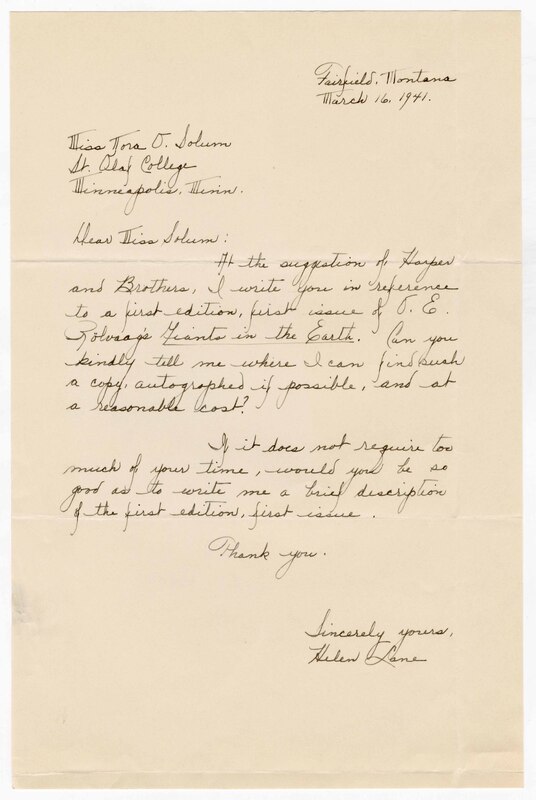 Fairfield, Montana
March 16, 1941.
Miss Nora O. Solum
St. Olaf College
Minneapolis, Minn.
Dear Miss Solum:
At the suggestion of Harper
and Brothers, I write you in reference
to a first edition, first issue of O. E.
Rölvaag's Giants in the Earth. Can you
kindly tell me where I can find such
a copy, autographed if possible, and at
a reasonable cost?
If it does not require too
much of your time, would you be so
good as to write me a brief description
of the first edition, first issue.
Thank you.
Sincerely yours,
Helen Lane